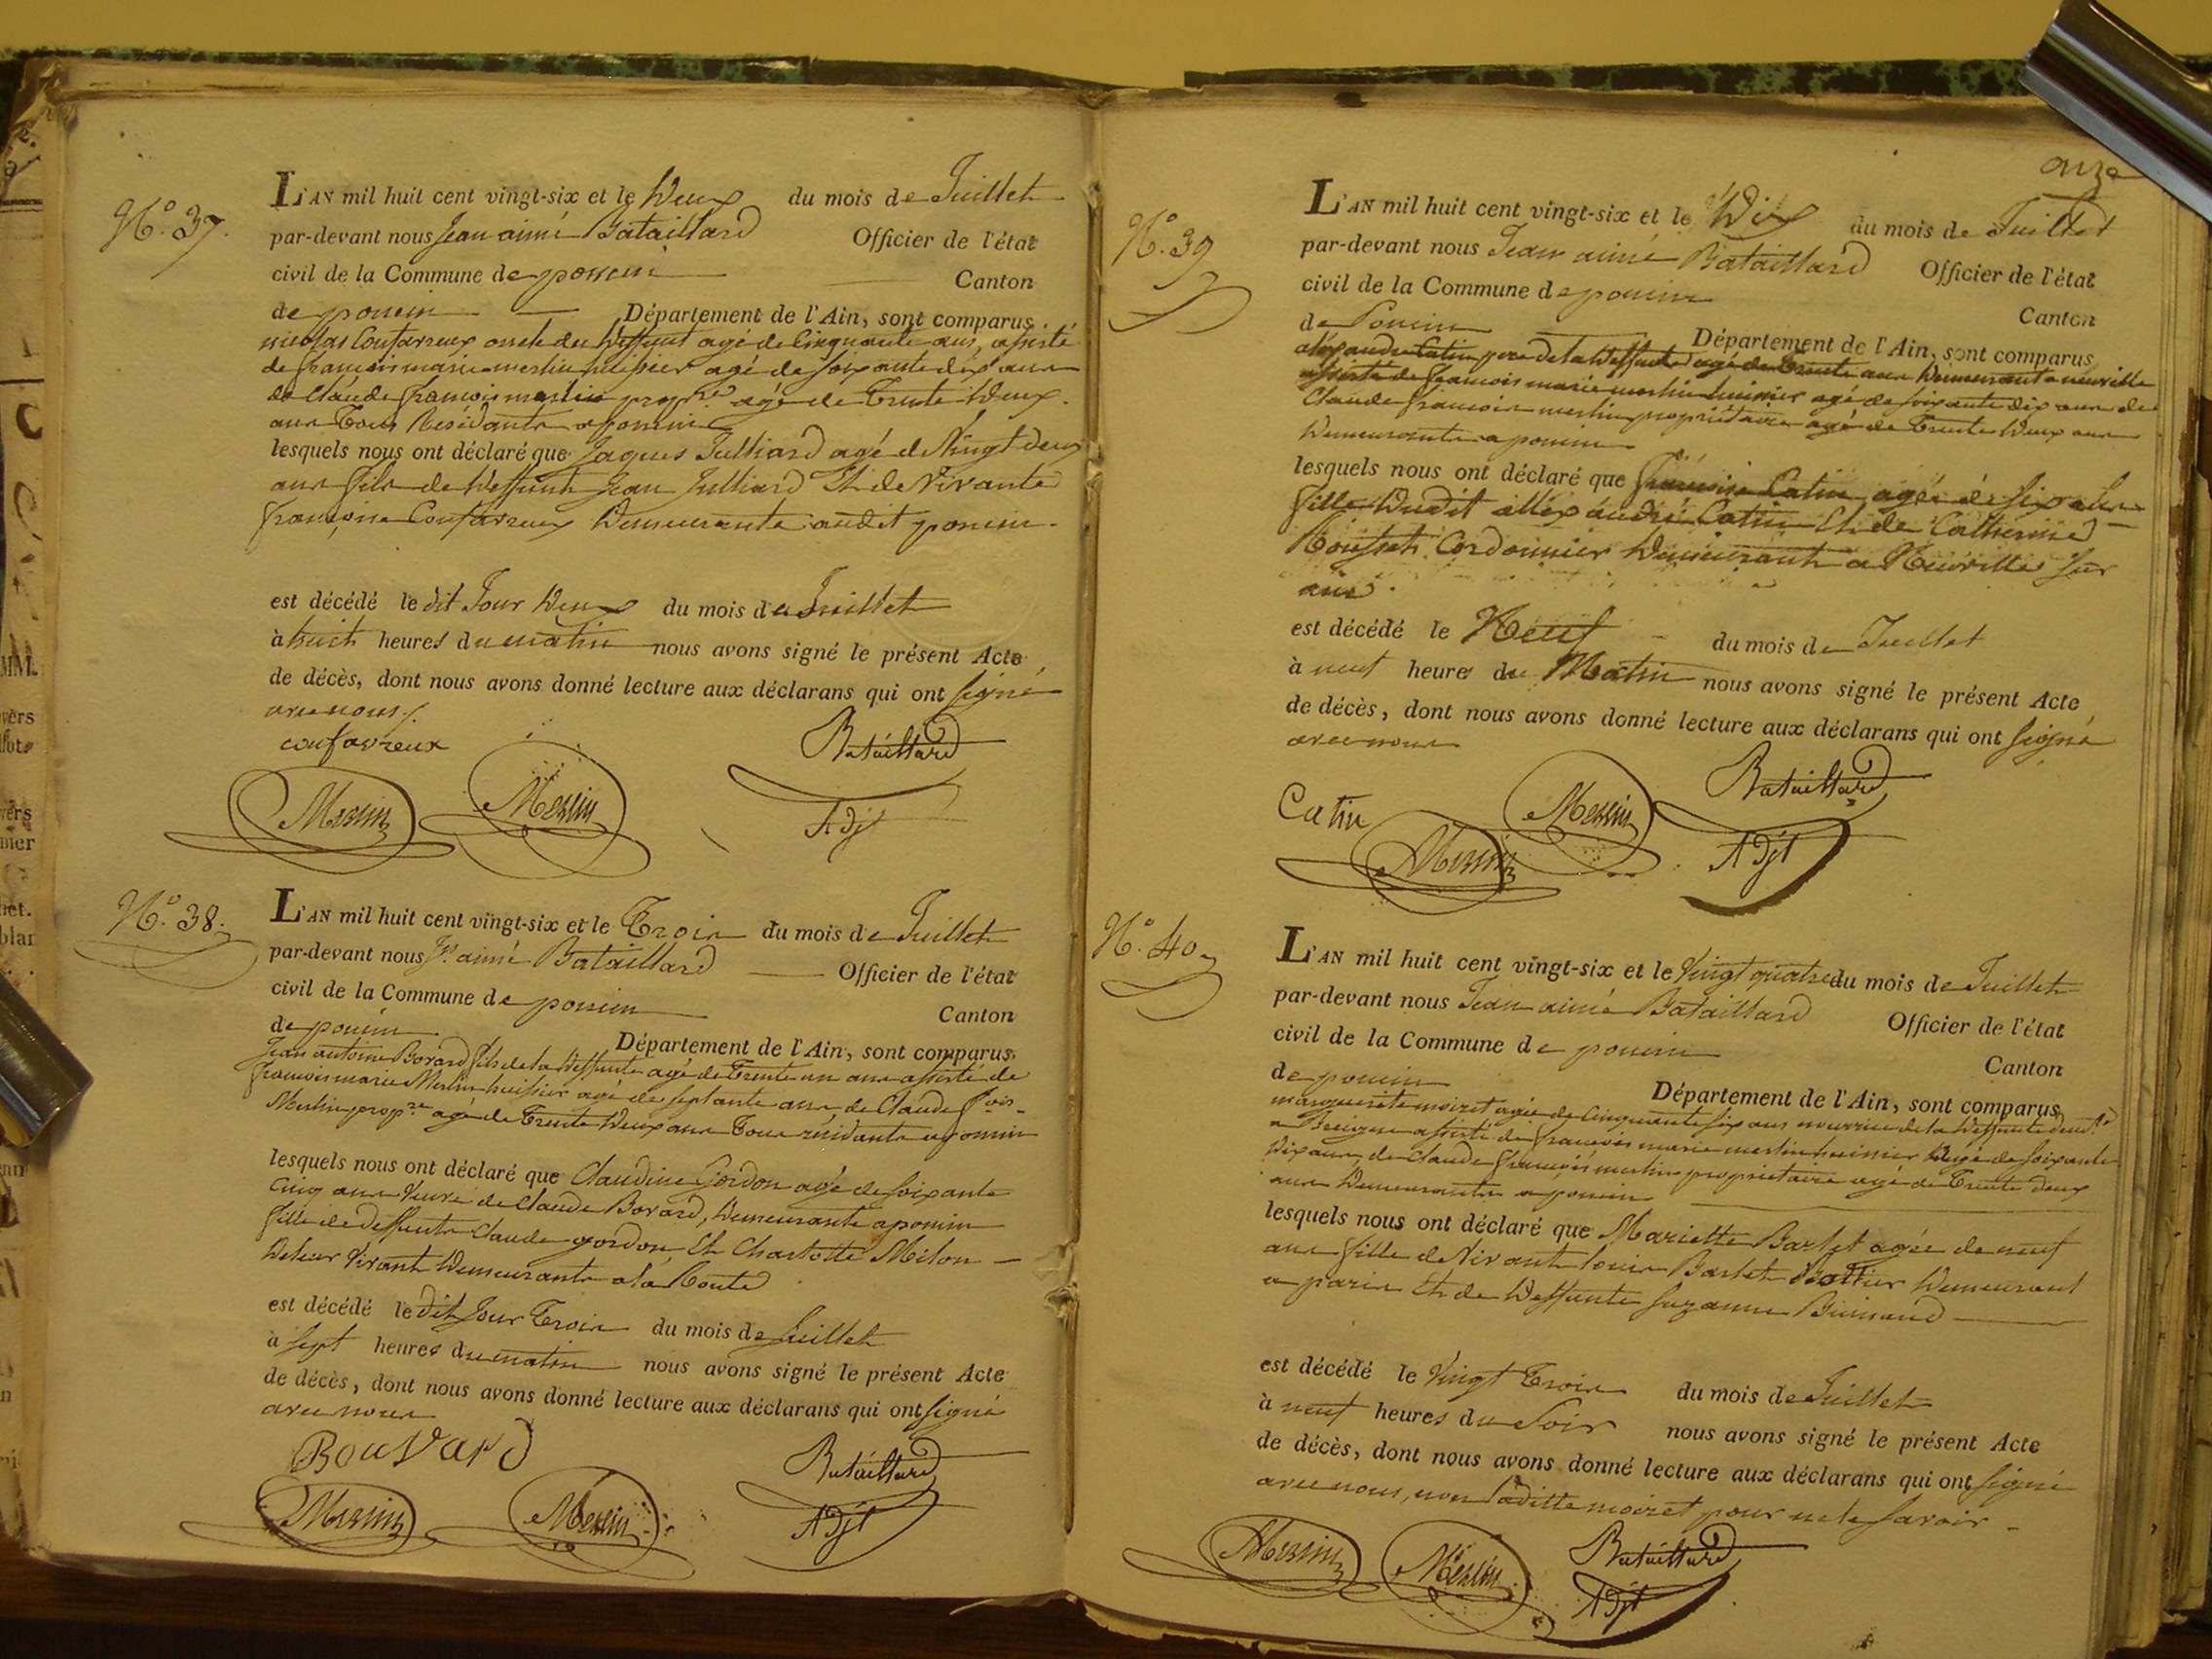 N.º 37.
L'AN mil huit cent vingt-six et le Deux du mois de Juillet
par-devant nous Jean aimé Bataillard Officier de l'état
civil de la Commune de poncin Canton
de poncin Département de l'Ain, sont comparus
nicolas Confavreux oncle du deffunt agé de Cinquante ans, assisté
de francois marie merlin huissier agé de soixante dix ans
de Claude francois merlin prop.re agé de Trente Deux
ans Tous Résidants a poncin
lesquels nous ont déclaré que Jaques Julliard agé de Vingt deux
ans fils de deffunt Jean Julliard Et de Vivante
françoise Confavreux Demeurante audit poncin.
est décédé le dit Jour Deux du mois de Juillet
à huit heures du matin nous avons signé le présent Acte
de décès, dont nous avons donné lecture aux déclarans qui ont signé
avec nous /.
confavreux
Bataillard
Merlin
Merlin
Adjt
N.º 38.
L'AN mil huit cent vingt-six et le Trois du mois de Juillet
par-devant nous Jn aimé Bataillard Officier de l'état
civil de la Commune de poncin Canton
de poncin Département de l'Ain, sont comparus
Jean antoine Bovard fils de la deffunte agé de Trente un ans assisté de
francois marie Merlin huissier agé de septante ans, de Claude fcois
Merlin prop.re agé de Trente Deux ans Tous résidants a poncin
lesquels nous ont déclaré que Claudine Gordon agé de soixante
cinq ans Veuve de Claude Bovard, Demeurante a poncin
fille de deffunts Claude gordon Et Charlotte Milon
De leur Vivant Demeurants a la
est décédé le dit Jour Trois du mois de Juillet
à sept heures du matin nous avons signé le présent Acte
de décès, dont nous avons donné lecture aux déclarans qui ont signé
avec nous
BouVard
Bataillard
Merlin
Merlin
Adjt
onze
N.º 39
L'AN mil huit cent vingt-six et le Dix du mois de Juillet
par-devant nous Jean aimé Bataillard Officier de l'état
civil de la Commune de poncin Canton
de Poncin Département de l'Ain, sont comparus
Catin pere de la deffunte agé de Trente ans Demeurant a neuville
assisté de francois marie merlin huissier agé de soixante dix ans de
Claude francois merlin propriétaire agé de Trente Deux ans
Demeurants a poncin
lesquels nous ont déclaré que Françoise Catin agée de six ans
fille Dudit Catin Et de Catherine
Cordonnier Demeurant a Neuville sur
ain.
est décédé le Neuf du mois de Juillet
à neuf heures du Matin nous avons signé le présent Acte
de décès, dont nous avons donné lecture aux déclarans qui ont signé
avec nous
Bataillard
Catin
Merlin
Merlin
Adjt
N.º 40
L'AN mil huit cent vingt-six et le Vingt quatre du mois de Juillet
par-devant nous Jean aimé Bataillard Officier de l'état
civil de la Commune de poncin Canton
de poncin Département de l'Ain, sont comparus
marguerite moiret agée de Cinquante six ans nourrice de la deffunte
a assisté de francois marie merlin huissier agé de soixante
Dix ans, de Claude francois merlin propriétaire agé de Trente deux
ans Demeurants a poncin
lesquels nous ont déclaré que Mariette Barlet agée de neuf
ans fille de Vivant louis Barlet Demeurant
a paris Et de deffunte suzanne
est décédé le Vingt Trois du mois de Juillet
à neuf heures du Soir nous avons signé le présent Acte
de décès, dont nous avons donné lecture aux déclarans qui ont signé
avec nous, non laditte moiret pour ne le savoir
Merlin
Merlin
Bataillard
Adjt